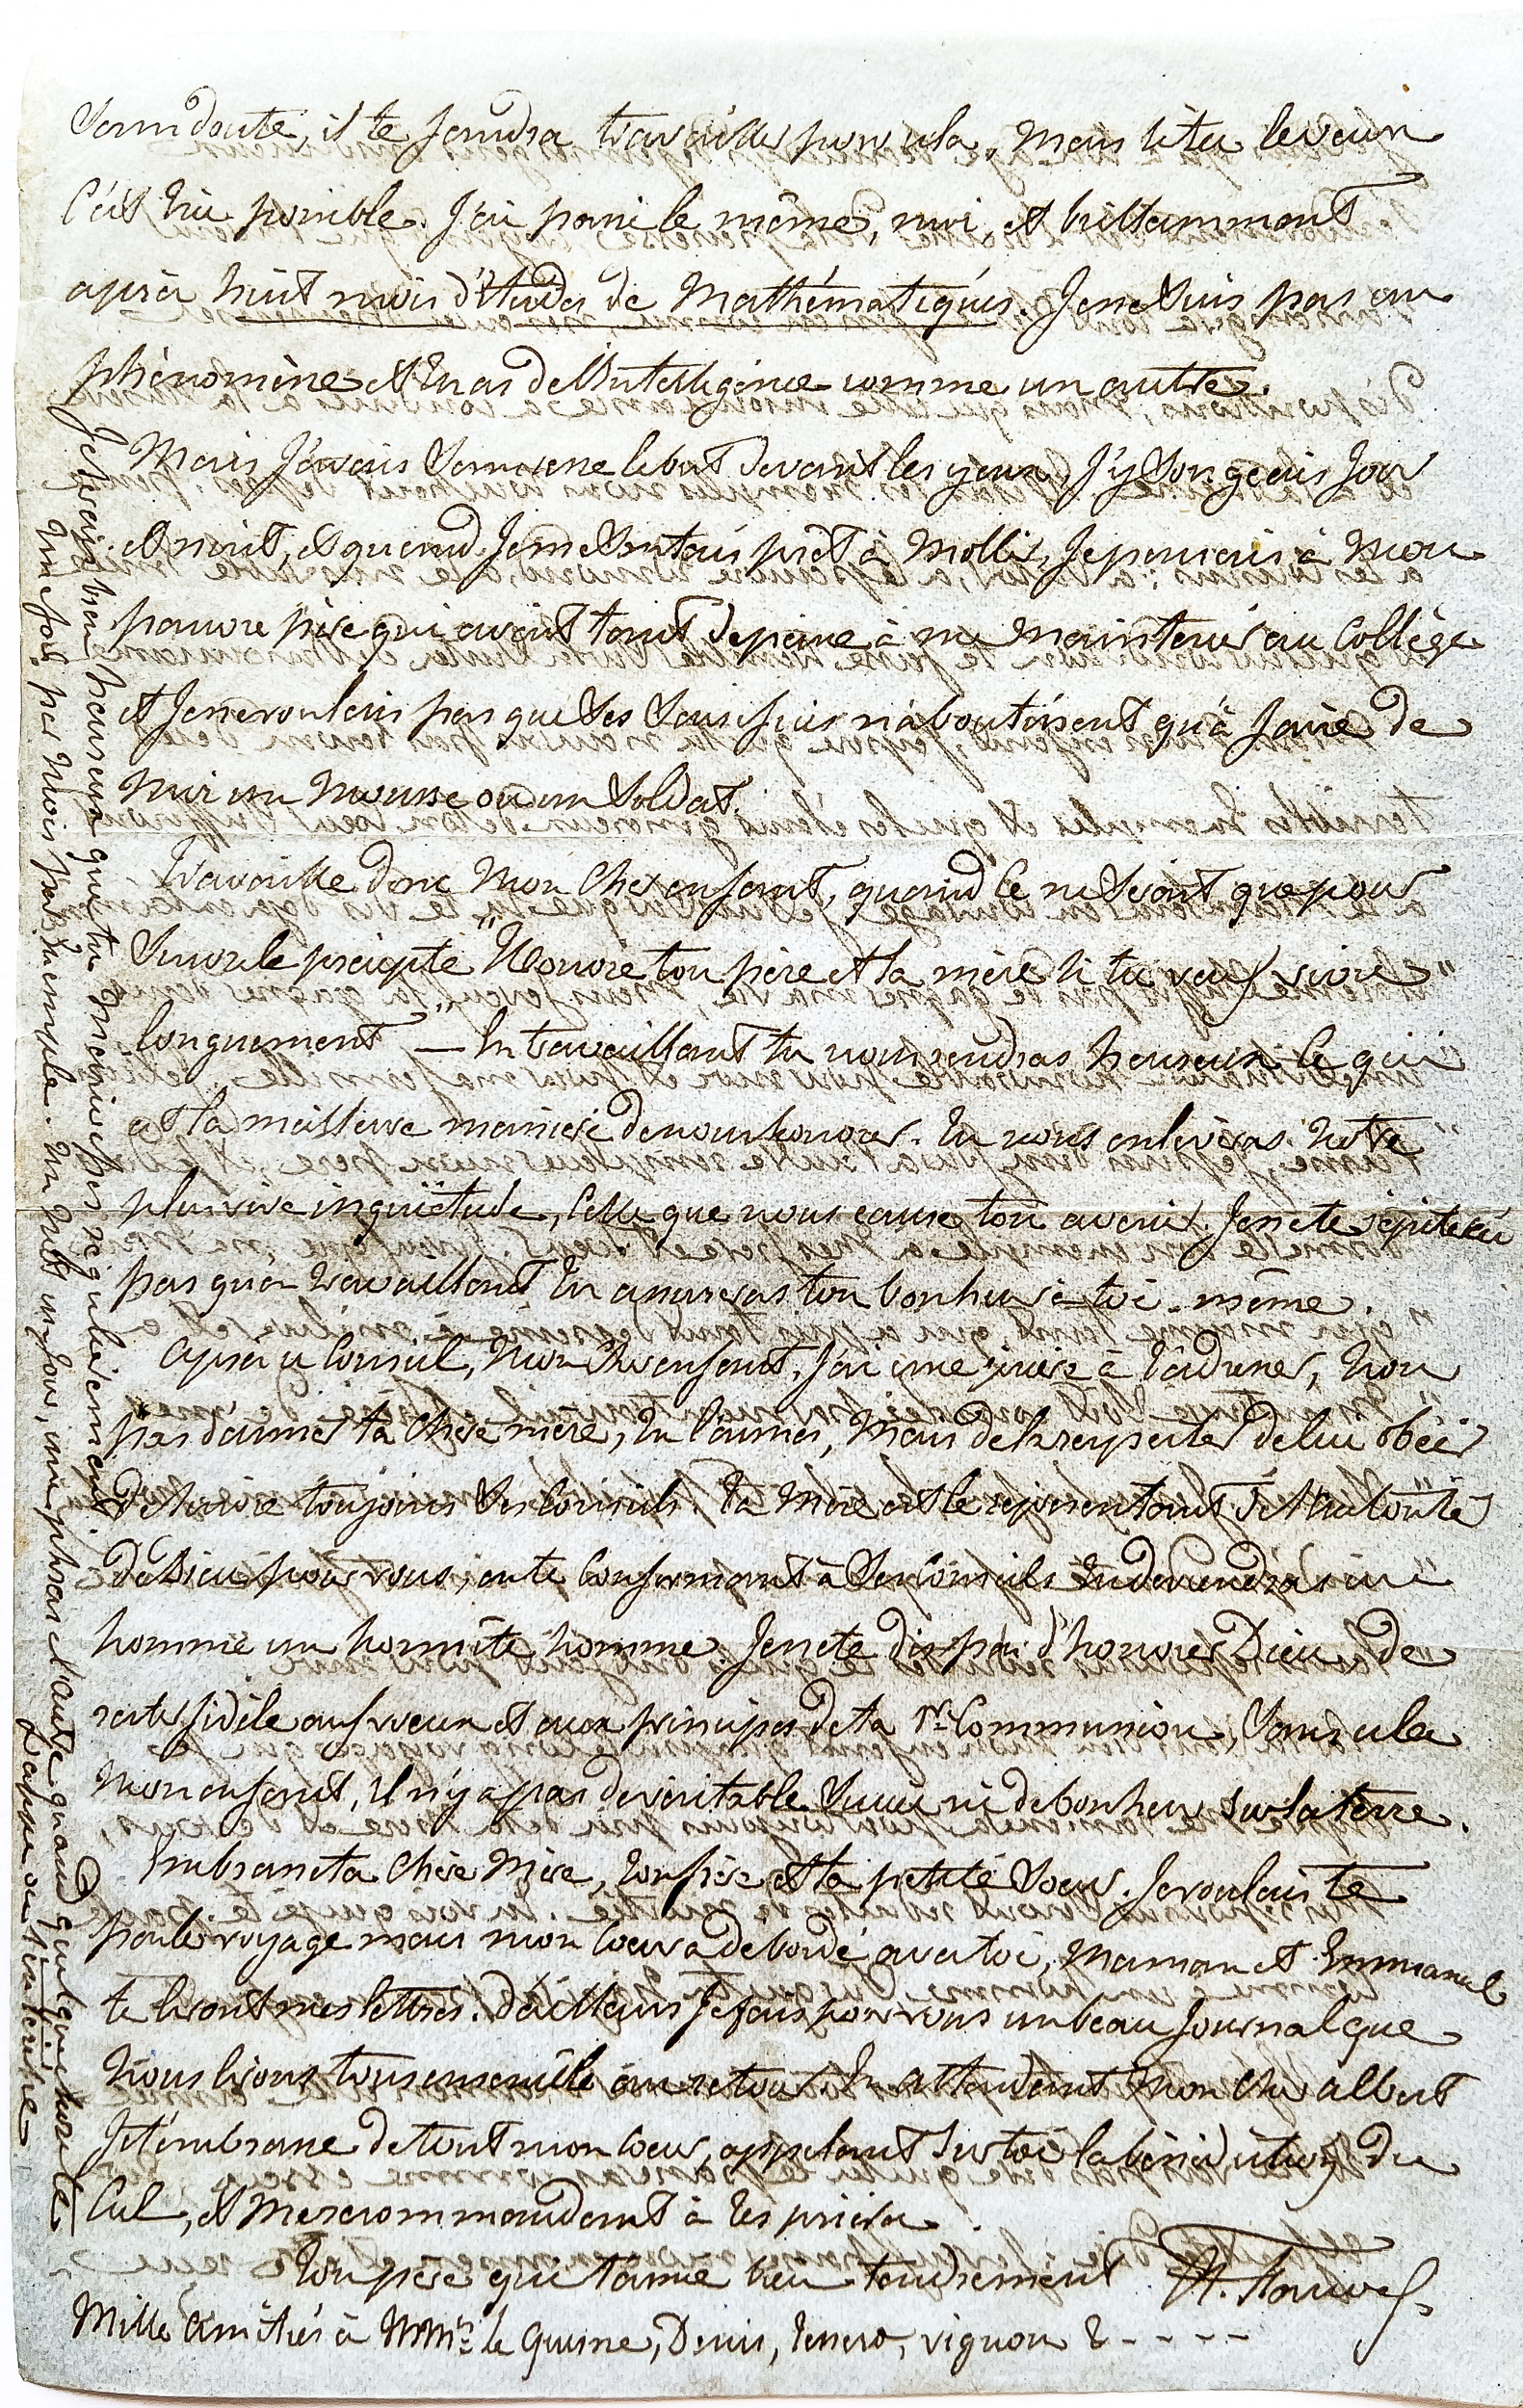 Sans doute, il te faudra travailler pour cela, mais si tu le veux
C'est bien possible. J'ai passé le même, moi, et brillamment
après huit mois d'études de Mathématiques. Je ne suis pas un
phénomène et tu as de l'Intelligence comme un autre.
Mais J'avais sans cesse le but devant les yeux, J'y songeais Jour
et nuit, et quand Je me sentais prêt à Mollir, Je pensais à Mon
pauvre père qui avait tant de peine à me Maintenir au Collège
et Je ne voulais pas que ses sacrifices n'aboutissent qu'à faire de
Moi un Mousse ou un Soldat.
Travaille donc Mon Cher enfant, quand ce ne serait que pour
Suivre le précepte "Honore ton père et ta mère si tu veux vivre
longuement" — En travaillant tu nous rendras heureux ce qui
est la meilleure manière de nous honorer. Tu nous enlèveras notre
plus vive inquiétude, Celle que nous cause ton avenir. Je ne te répèterai
pas qu'en travaillant tu assureras ton bonheur à toi-même.
Après ce Conseil, Mon Cher enfant, J'ai une prière à t'adresser, non
pas d'aimer ta Chère mère, tu l'aimes, Mais de la respecter de lui obéir
de suivre toujours ses Conseils. Ta Mère est le représentant de l'Autorité
de Dieu pour vous, en te Conformant à ses Conseils tu deviendras un
homme un honnête homme. Je ne te dis pas d'honorer Dieu, de
rester fidèle aux vœux et aux principes de ta 1re Communion, Sans cela
Mon enfant, Il n'y a pas de véritable Succès ni de bonheur sur la terre.
Embrasse ta Chère Mère, ton frère et ta petite Sœur. Je voulais te
parler voyage mais mon Cœur a débordé avec toi, Maman et Emmanuel
te liront mes lettres. D'ailleurs Je fais pour vous un beau Journal que
Nous lirons tous ensemble au retour. En attendant Mon Cher Albert
Je t'embrasse de tout mon Cœur, appelant sur toi la bénédiction du
Ciel, et Me recommandant à tes prières.
Ton père qui t'aime bien tendrement
Mille Amitiés à MMrs le Guerne, Denis, vignon &----
Je serais bien heureux que tu m'écrives régulièrement
Une fois par Mois par exemple. Un petit mot un Jour, une phrase l'autre quand quelque chose le